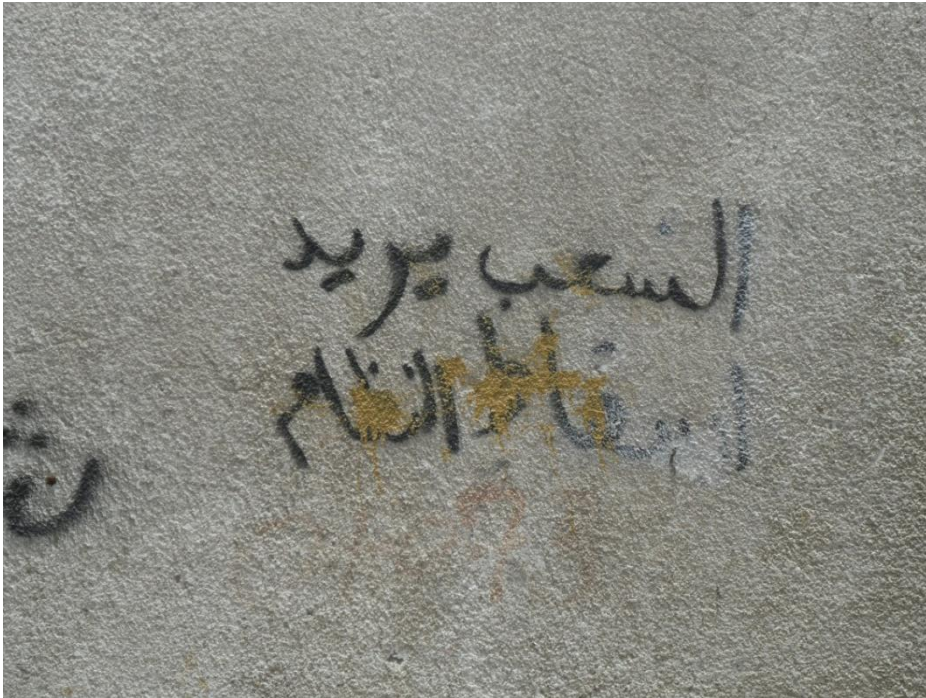 الشعب يريد
إسقاط النظام